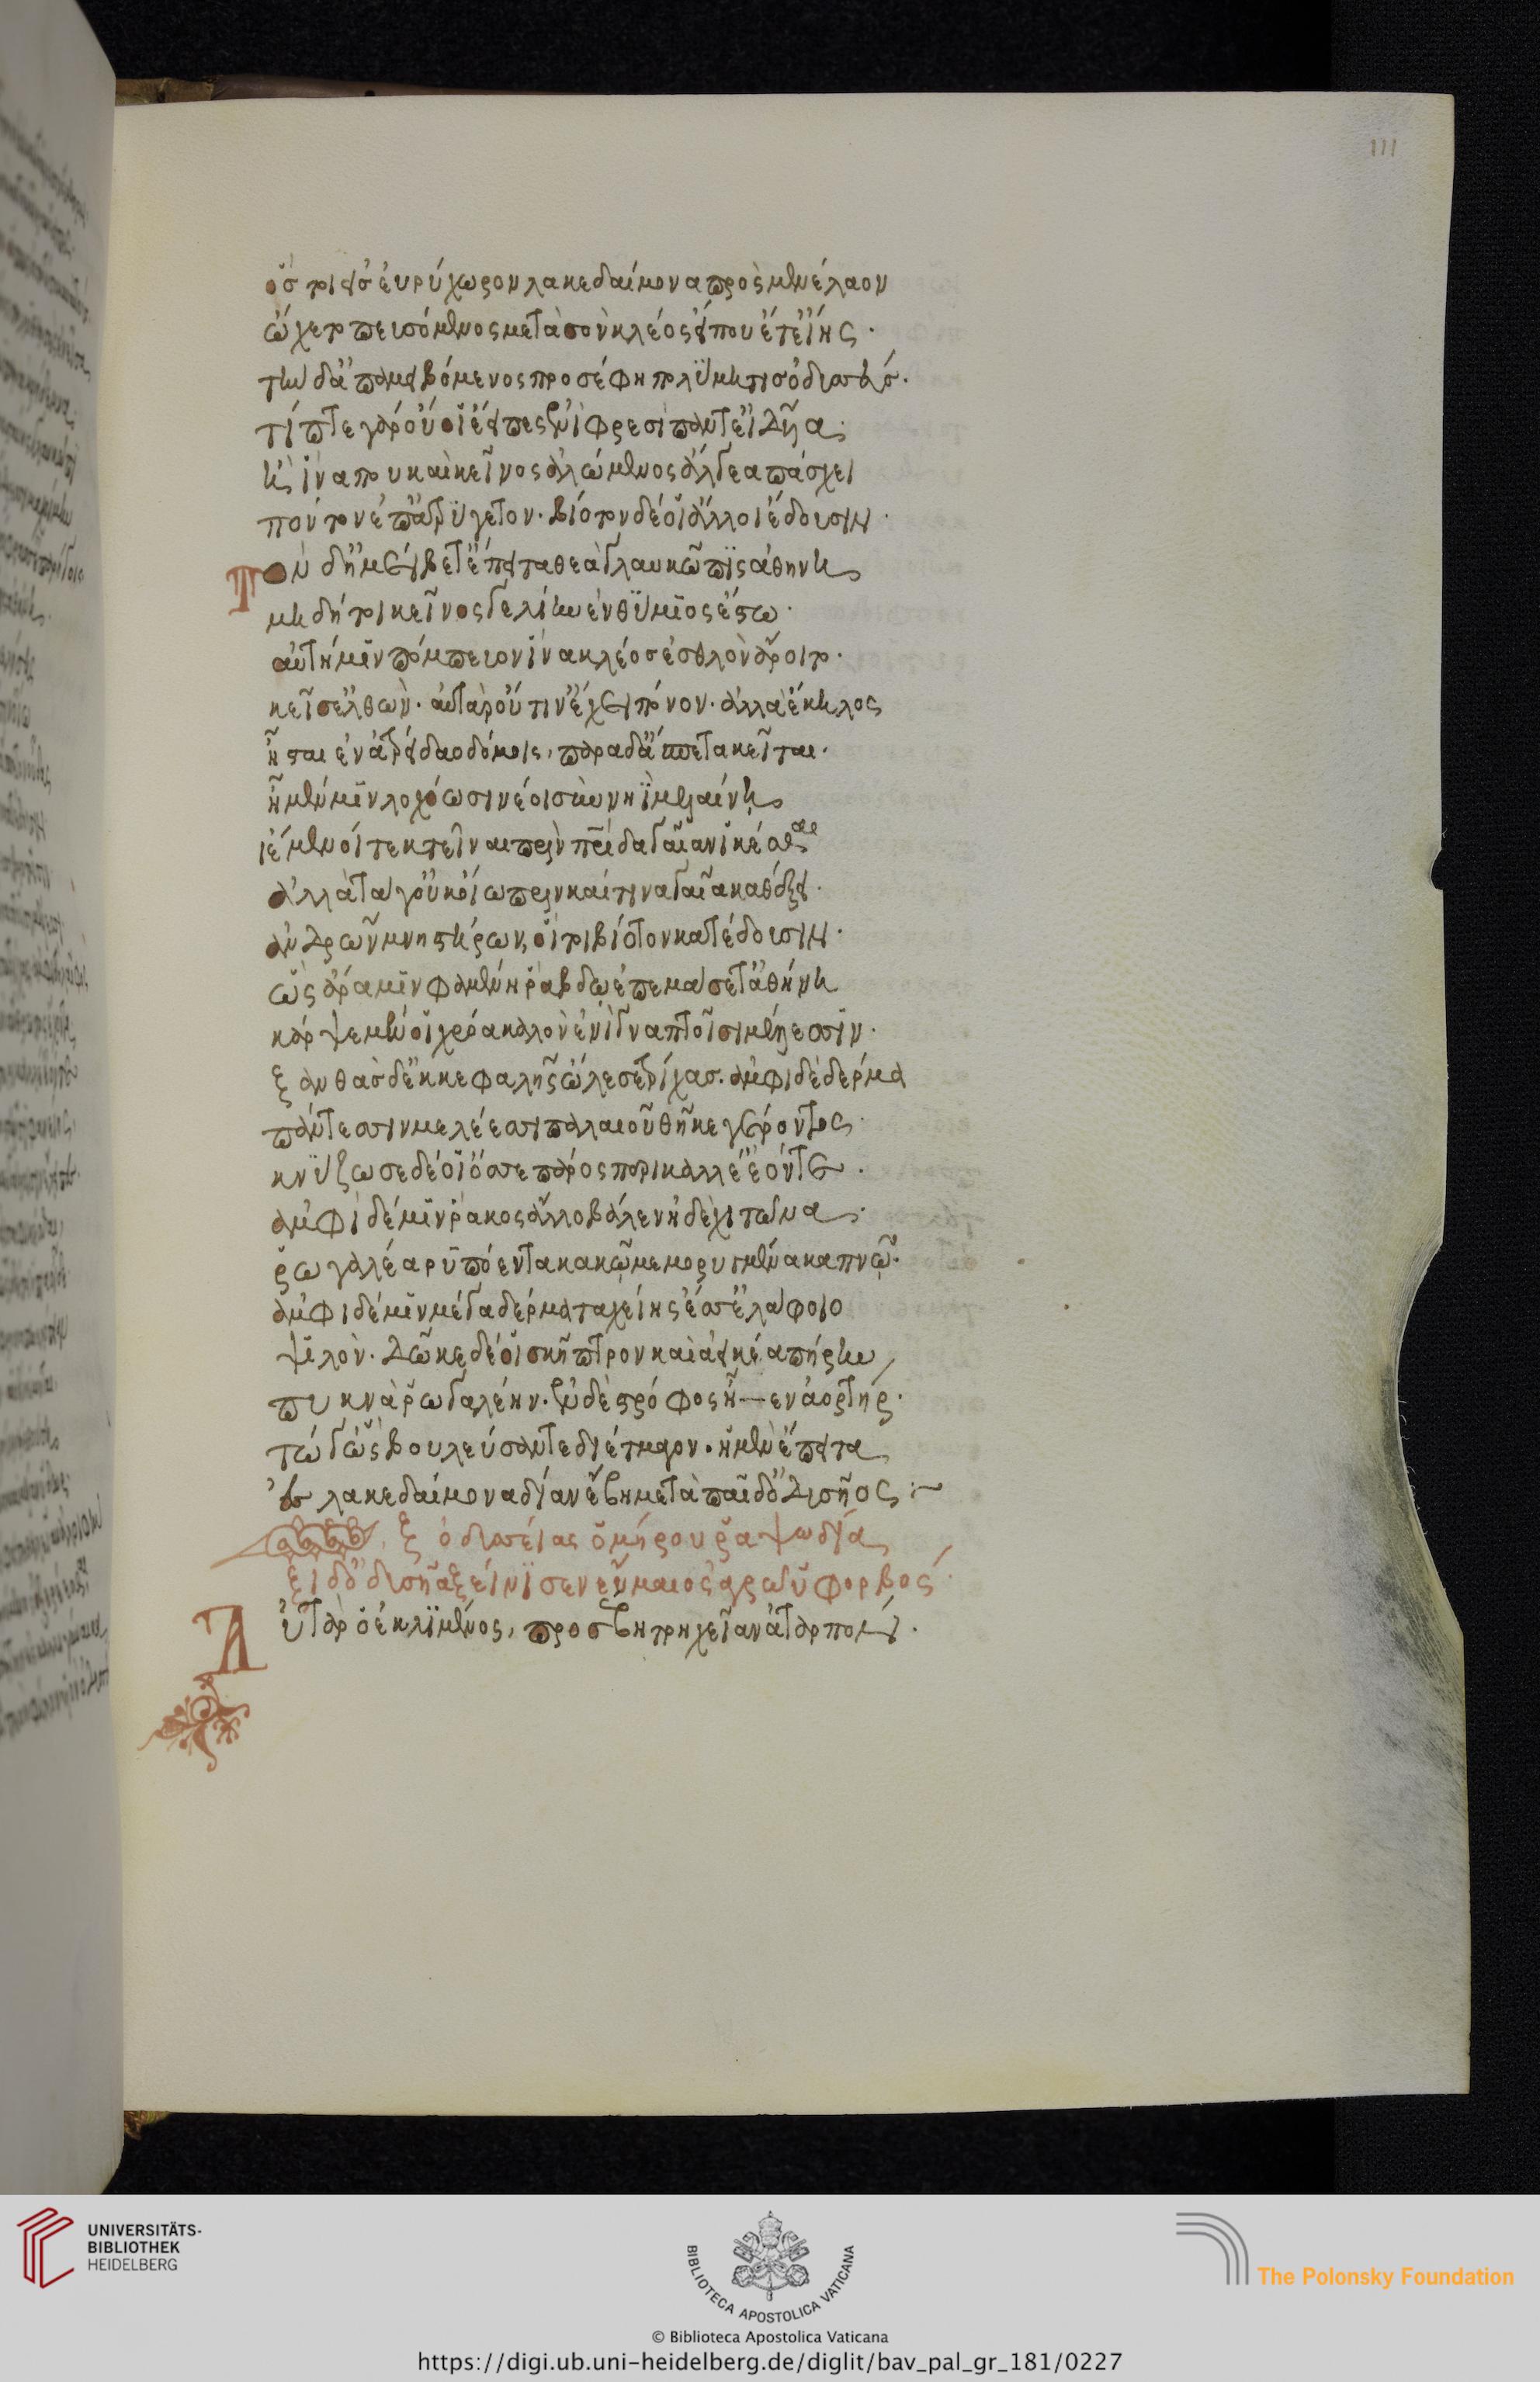 111
ὅς τοι ἐς εὐρύχωρον λακεδαίμονα πρὸς μενέλαον
ᾤχετο πευσόμενος μετὰ σὸν κλέος εἴ που ἔτ' εἴης.
τὴν δ' ἀπαμειβόμενος προσέφη πολύμητις ὀδυσσεύς.
τίπτε γάρ οὔ οἱ ἔειπες ἐνὶ φρεσὶ πάντ' εἰδῆα.
ἢ ἵνα που καὶ κεῖνος ἀλώμενος ἄλγεα πάσχει
πόντον ἐπ' ἀτρύγετον. βίοτον δέ οἱ ἄλλοι ἔδουσιν.
Τὸν δ' ἠμείβετ' ἔπειτα θεὰ γλαυκῶπις ἀθήνη
μὴ δή τοι κεῖνος γε λίην ἐνθύμιος ἔστω.
αὐτή μιν πόμπευον ἵνα κλέος ἐσθλὸν ἄροιτο.
κεῖσ' ἐλθὼν. αὐτὰρ οὔ τιν' ἔχει πόνον. ἀλλὰ ἕκηλος
ἧσται ἐν ἀτρείδαο δόμοις, παρὰ δ' ἄσπετα κεῖται.
ἦ μέν μιν λοχόωσι νέοι σὺν νηῒ μελαίνη
ἱέμενοι κτεῖναι πρὶν πατρίδα γαῖαν ἱκέσθαι
ἀλλὰ τά γ' οὐκ ὀΐω πρὶν καί τινα γαῖα καθέξει.
ἀνδρῶν μνηστήρων, οἵ τοι βίοτον κατέδουσιν.
ὣς ἄρα μιν φαμένη ῥάβδω ἐπεμάσσετ' ἀθήνη
κάρψε μέν οἱ χρόα καλὸν ἐνὶ γναπτοῖσι μέλεσσιν.
ξανθὰς δ' ἐκ κεφαλῆς ὤλεσε τρίχας. ἀμφὶ δὲ δέρμα
πάντεσσιν μελέεσσι παλαιοῦ θῆκε γέροντος.
κνύζωσε δέ οἱ ὄσσε πάρος περικαλλέ' ἐόντε.
ἀμφὶ δέ μιν ῥάκος ἄλλο βάλεν ἠδὲ χιτῶνα.
ῥωγαλέα ῥυπόεντα κακῷ μεμορυγμένα καπνῷ.
ἀμφὶ δέ μιν μέγα δέρμα ταχείης ἕσσ' ἐλάφοιο
ψιλὸν. δῶκε δέ οἱ σκῆπτρον καὶ ἀεικέα πήρην
πυκνὰ ῥωγαλέην. ἐν δὲ στρόφος ἦ—εν ἀορτήρ.
τώ γ' ὣς βουλεύσαντε διέτμαγον. ἡ μὲν ἔπειτα
ἐς λακεδαίμονα δῖαν ἔβη μετὰ παῖδ' ὀδυσῆος :~
ξ ὀδυσσείας ὁμήρου ῥαψωδία
ξῖ δ' ὀδυσῆα ξείνισεν εὔμαιος ἀγρῷ ὑφορβός
Αὐτὰρ ὁ ἐκ λιμένος, προσέβη τρηχεῖαν ἀταρπόν.
UNIVERSITÄTS-
BIBLIOTHEK
HEIDELBERG
BIBLIOTECA APOSTOLICA VATICANA
The Polonsky Foundation
© Biblioteca Apostolica Vaticana
https://digi.ub.uni-heidelberg.de/diglit/bav_pal_gr_181/0227